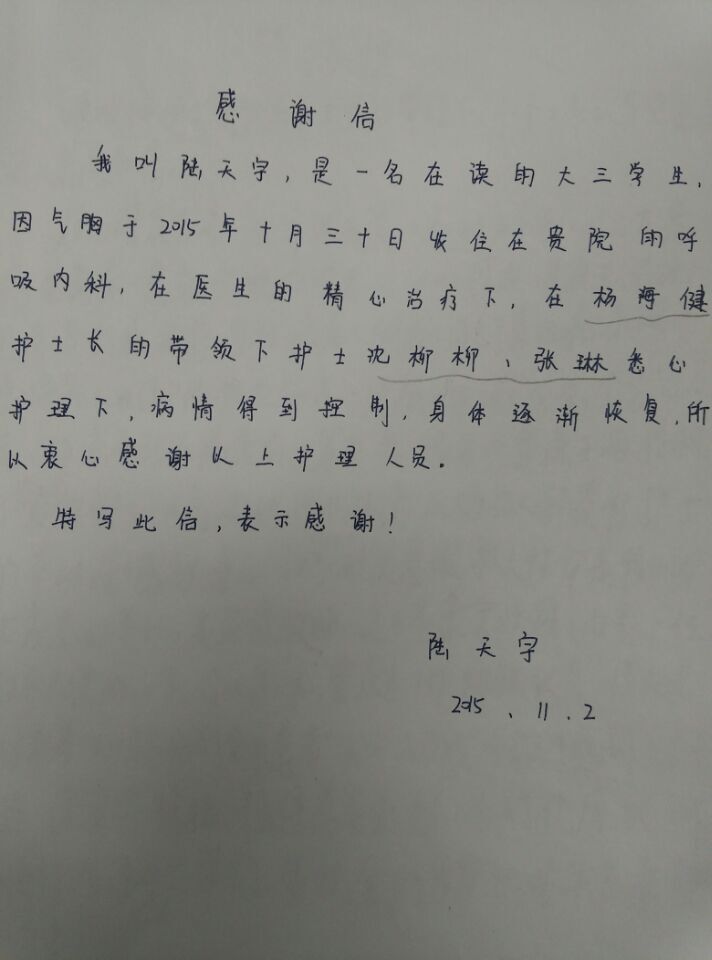 感谢信
我叫陆天宇，是一名在读的大三学生，
因气胸于2015年十月三十日收住在贵院的呼
吸内科，在医生的精心治疗下，在杨海健
护士长的带领下护士沈柳柳、张琳悉心
护理下，病情得到控制，身体逐渐恢复，所
以衷心感谢以上护理人员。
特写此信，表示感谢！
陆天宇
2015、11.2